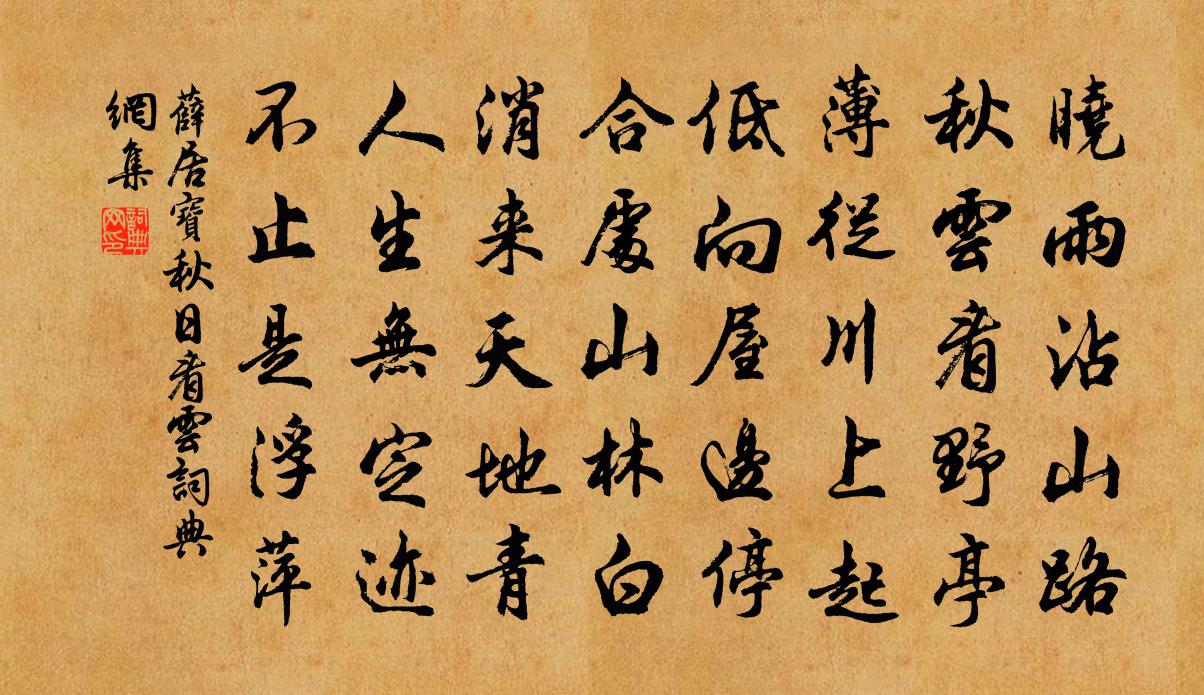 曉雨沾山路
秋雲看野亭
薄從川上起
低向屋邊停
合處山林白
消来天地青
人生無定迹
不止是浮萍
薛居寶秋日看雲詞典
網集
詞典網印